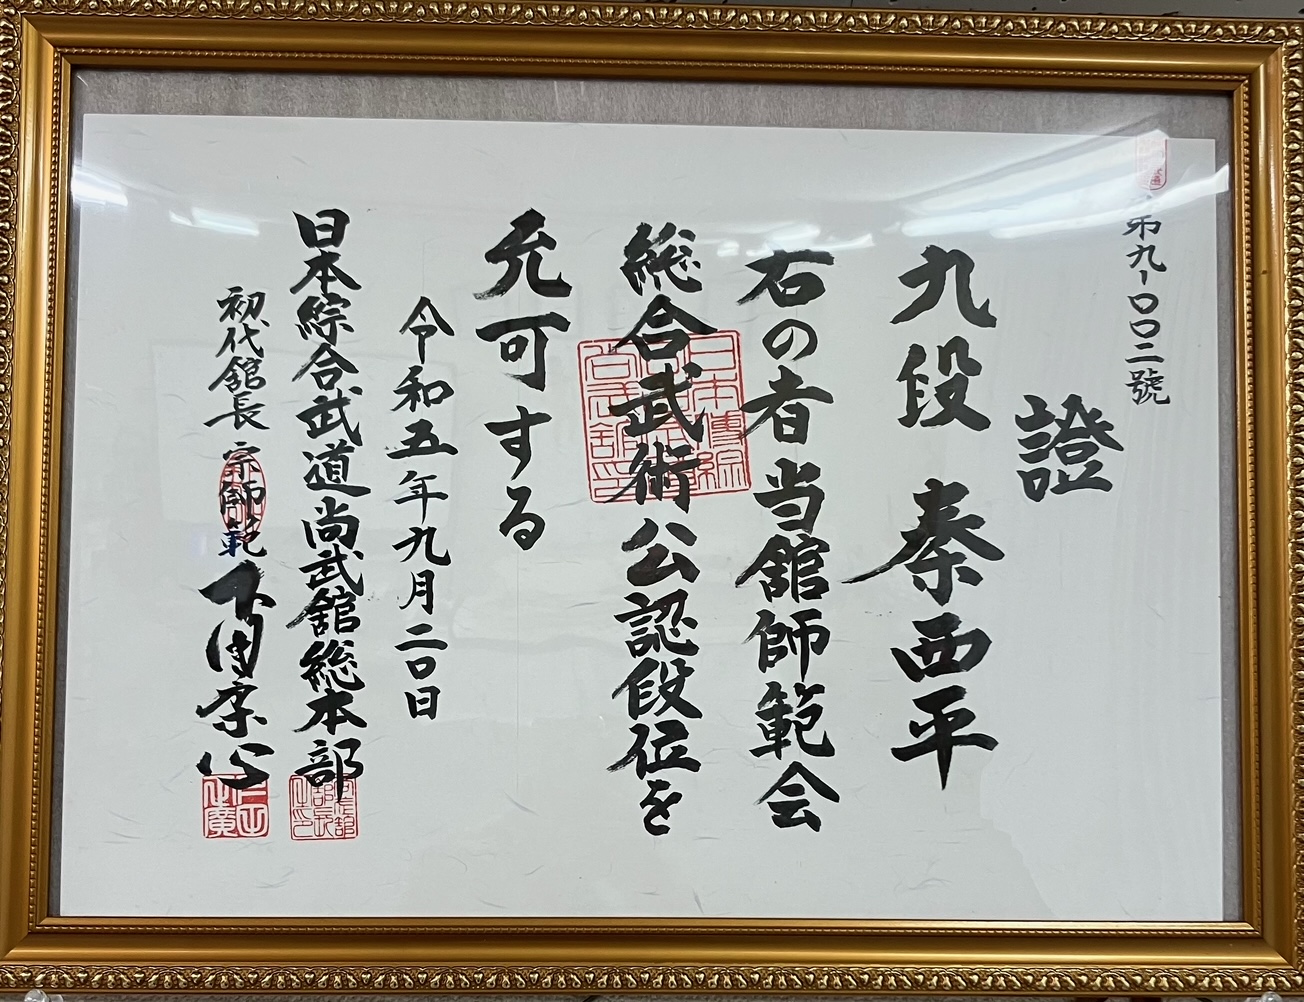 第九-〇〇二號
證
九段 秦西平
右の者当舘師範会
総合武術公認段位を
允可する
令和五年九月二〇日
日本綜合武道尚武舘総本部
初代舘長 宗師範